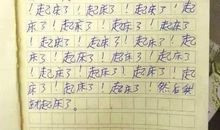 ！起床了！起床了！起床了！起
床了！起床了！起床了！起床
了！起床了！起床了！起床了
！起床了！起床了！起床了！
起床了！起床了！起床了！起
床了！起床了！起床了！起床
了！起床了！起床了！然后我
就起床了。